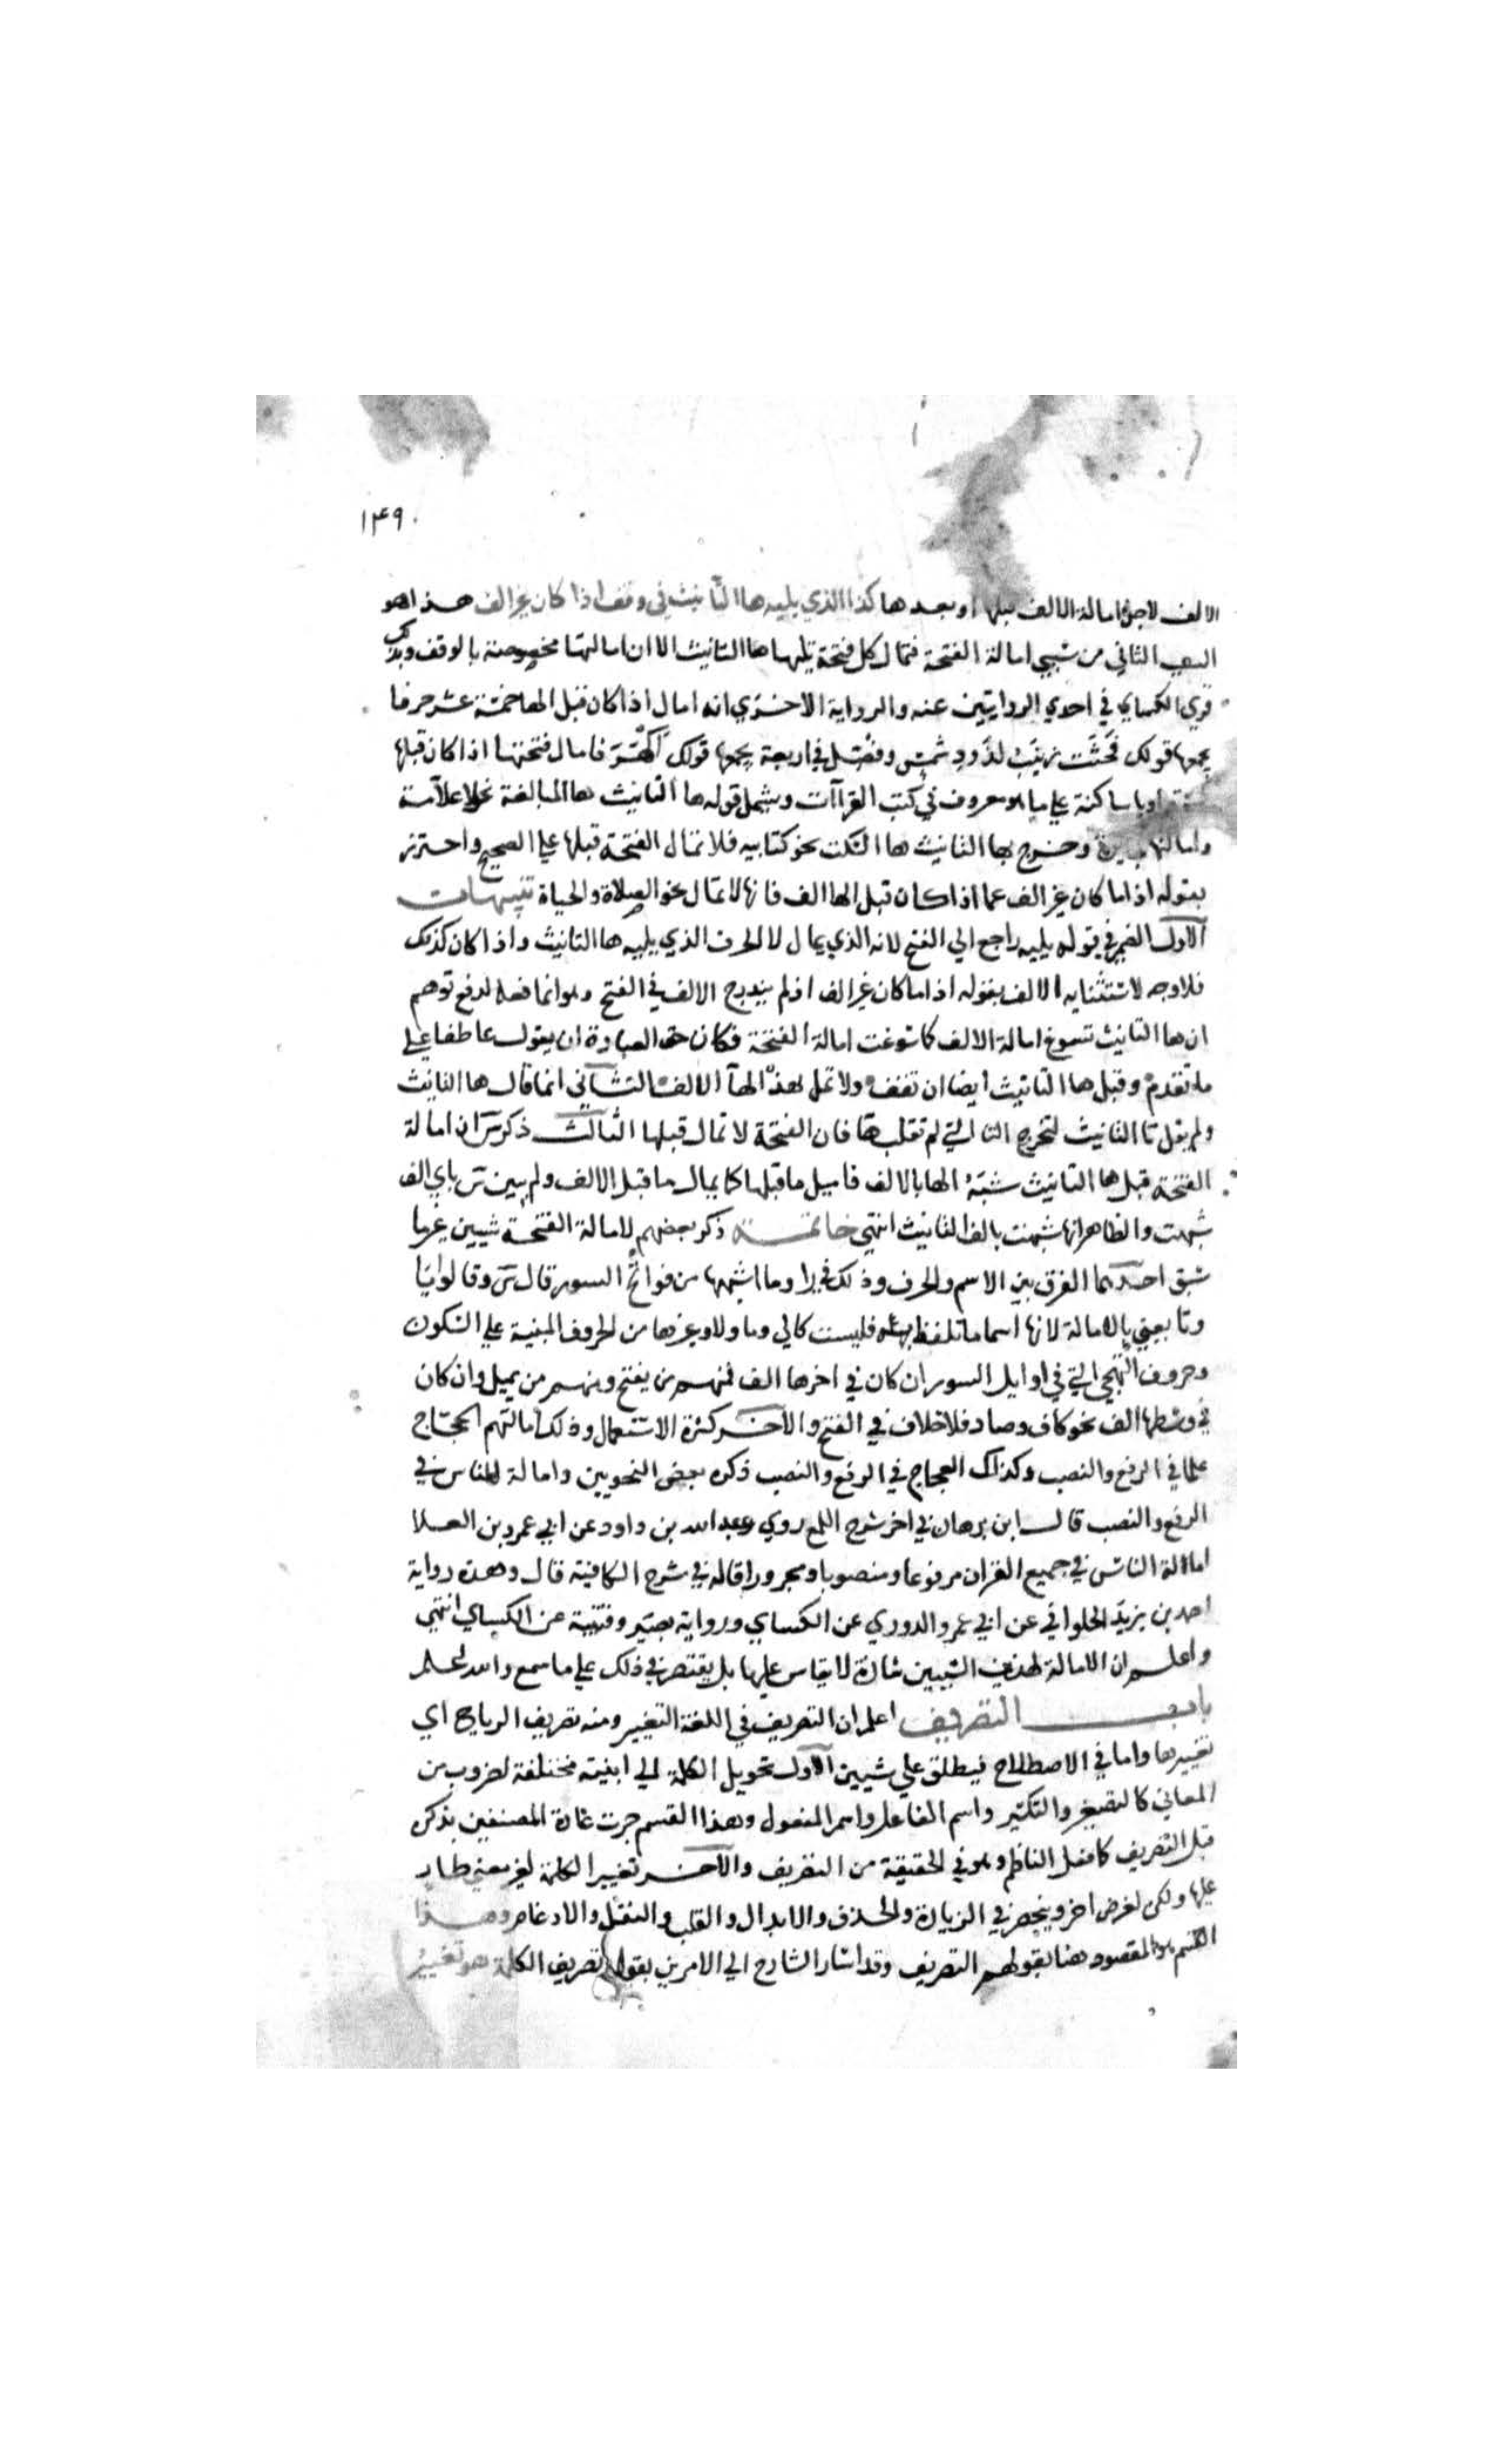 ١٤٩
الالف لاجل امالة الالف قبلها او بعدها كذا الذي يليه ها التانيث في وقف اذا كان غير الف هذا هو
السبب الثاني من سببي امالة الفتحة فتمال كل فتحة تليها ها التانيث الا ان امالتها مخصوصة بالوقف وبذلك
قرى الكساي في احدي الروايتين عنه والرواية الاخري انه امال اذا كان قبل الها خمسة عشر حرفا
يجمعها قولك فجثت زينب لذود شمس وفصل في اربعة يجمعها قولك اكهر فامال فتحتها اذا كان قبلها
كسرة او يا ساكنة علي ما هو معروف في كتب القراآت وشمل قوله ها التانيث ها المبالغة نحو علامة
وامالتها وخرج بها التانيث ها السكت نحو كتابيه فلا تمال الفتحة قبلها علي الصحيح واحترز
بقوله اذا ما كان غير الف عما اذا كان قبل الها الف فانها لا تمال نحو الصلاة والحياة تنبيهات
الاول الضمير في قوله يليه راجع الي الفتح لانه الذي يمال لا الحرف الذي يليه ها التانيث واذا كان كذلك
فلا وجه لاستثنايه الالف بقوله اذا ما كان غير الف اذ لم يندرج الالف في الفتح وهو انما فعله لدفع توهم
ان ها التانيث تسوغ امالة الالف كما سوغت امالة الفتحة فكان حق العبارة ان يقول عاطفا علي
ما تقدم وقبل ها التانيث ايضا ان تقف ولا تمل لهذه الها الالف الثاني انما قال ها التانيث
ولم يقل تا التانيث لتخرج التا التي لم تقلب ها فان الفتحة لا تمال قبلها الثالث ذكر س ان امالة
الفتحة قبل ها التانيث شبه الها بالالف فاميل ما قبلها كما يمال ما قبل الالف ولم يبين س باي الف
شبهت والظاهر انها شبهت بالف التانيث انتهي خاتمة ذكر بعضهم لامالة الفتحة شيين غير ما
سبق احدهما الفرق بين الاسم والحرف وذلك في را وما اشبهها من فواتح السور قال س وقالوا يا
وتا يعني بالامالة لانها اسما ما تلفظ به فليست كالي وما ولا وغيرها من الحروف المبنية علي السكون
وحروف التهجي التي في اوايل السور ان كان في اخرها الف فمنهم من يفتح ومنهم من يميل وان كان
في وسطها الف نحو كاف وصاد فلا خلاف في الفتح والاخر كثرة الاستعمال وذلك امالتهم الحجاج
علما في الرفع والنصب وكذلك العجاج في الرفع والنصب ذكره بعض النحويين وامالة الناس في
الرفع والنصب قال ابن برهان في اخر شرح اللمع روي عبد الله بن داود عن ابي عمرو بن العلا
امالة الناس في جميع القران مرفوعا ومنصوبا ومجرورا قاله في شرح الكافية قال وهذه رواية
احمد بن يزيد الحلواني عن ابي عمرو الدوري عن الكساي ورواية نصير وقتيبة عن الكساي انتهي
واعلم ان الامالة لهذين السببين شاذة لا يقاس عليها بل يقتصر في ذلك علي ما سمع والله اعلم
باب التصريف اعلم ان التصريف في اللغة التغيير ومنه تصريف الرياح اي
تغييرها واما في الاصطلاح فيطلق علي شيين الاول تحويل الكلمة الي ابنية مختلفة لضروب من
المعاني كالتصغير والتكسير واسم الفاعل واسم المفعول وهذا القسم جرت عادة المصنفين بذكره
قبل التصريف كما فعل الناظم وهو في الحقيقة من التصريف والاخر تغيير الكلمة لغير معني طار
عليها ولكن لغرض اخر وينحصر في الزيادة والحذف والابدال والقلب والنقل والادغام وهذا
القسم هو المقصود هنا بقولهم التصريف وقد اشار الشارح الي الامرين بقوله تصريف الكلمة هو تغيير